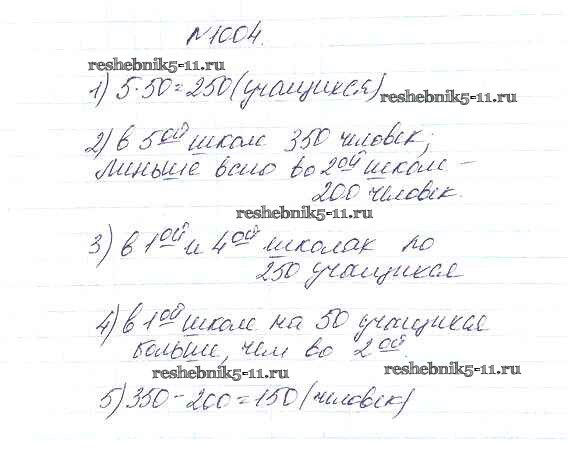 №1004.
reshebnik5-11.ru
1) 5·50=250(учащихся)
reshebnik5-11.ru
2) в 5ой школе 350 человек;
меньше всего во 2ой школе –
200 человек.
reshebnik5-11.ru
3) в 1ой и 4ой школах по
250 учащихся
4) в 1ой школе на 50 учащихся
больше, чем во 2ой.
reshebnik5-11.ru
reshebnik5-11.ru
5) 350-200=150(человек)